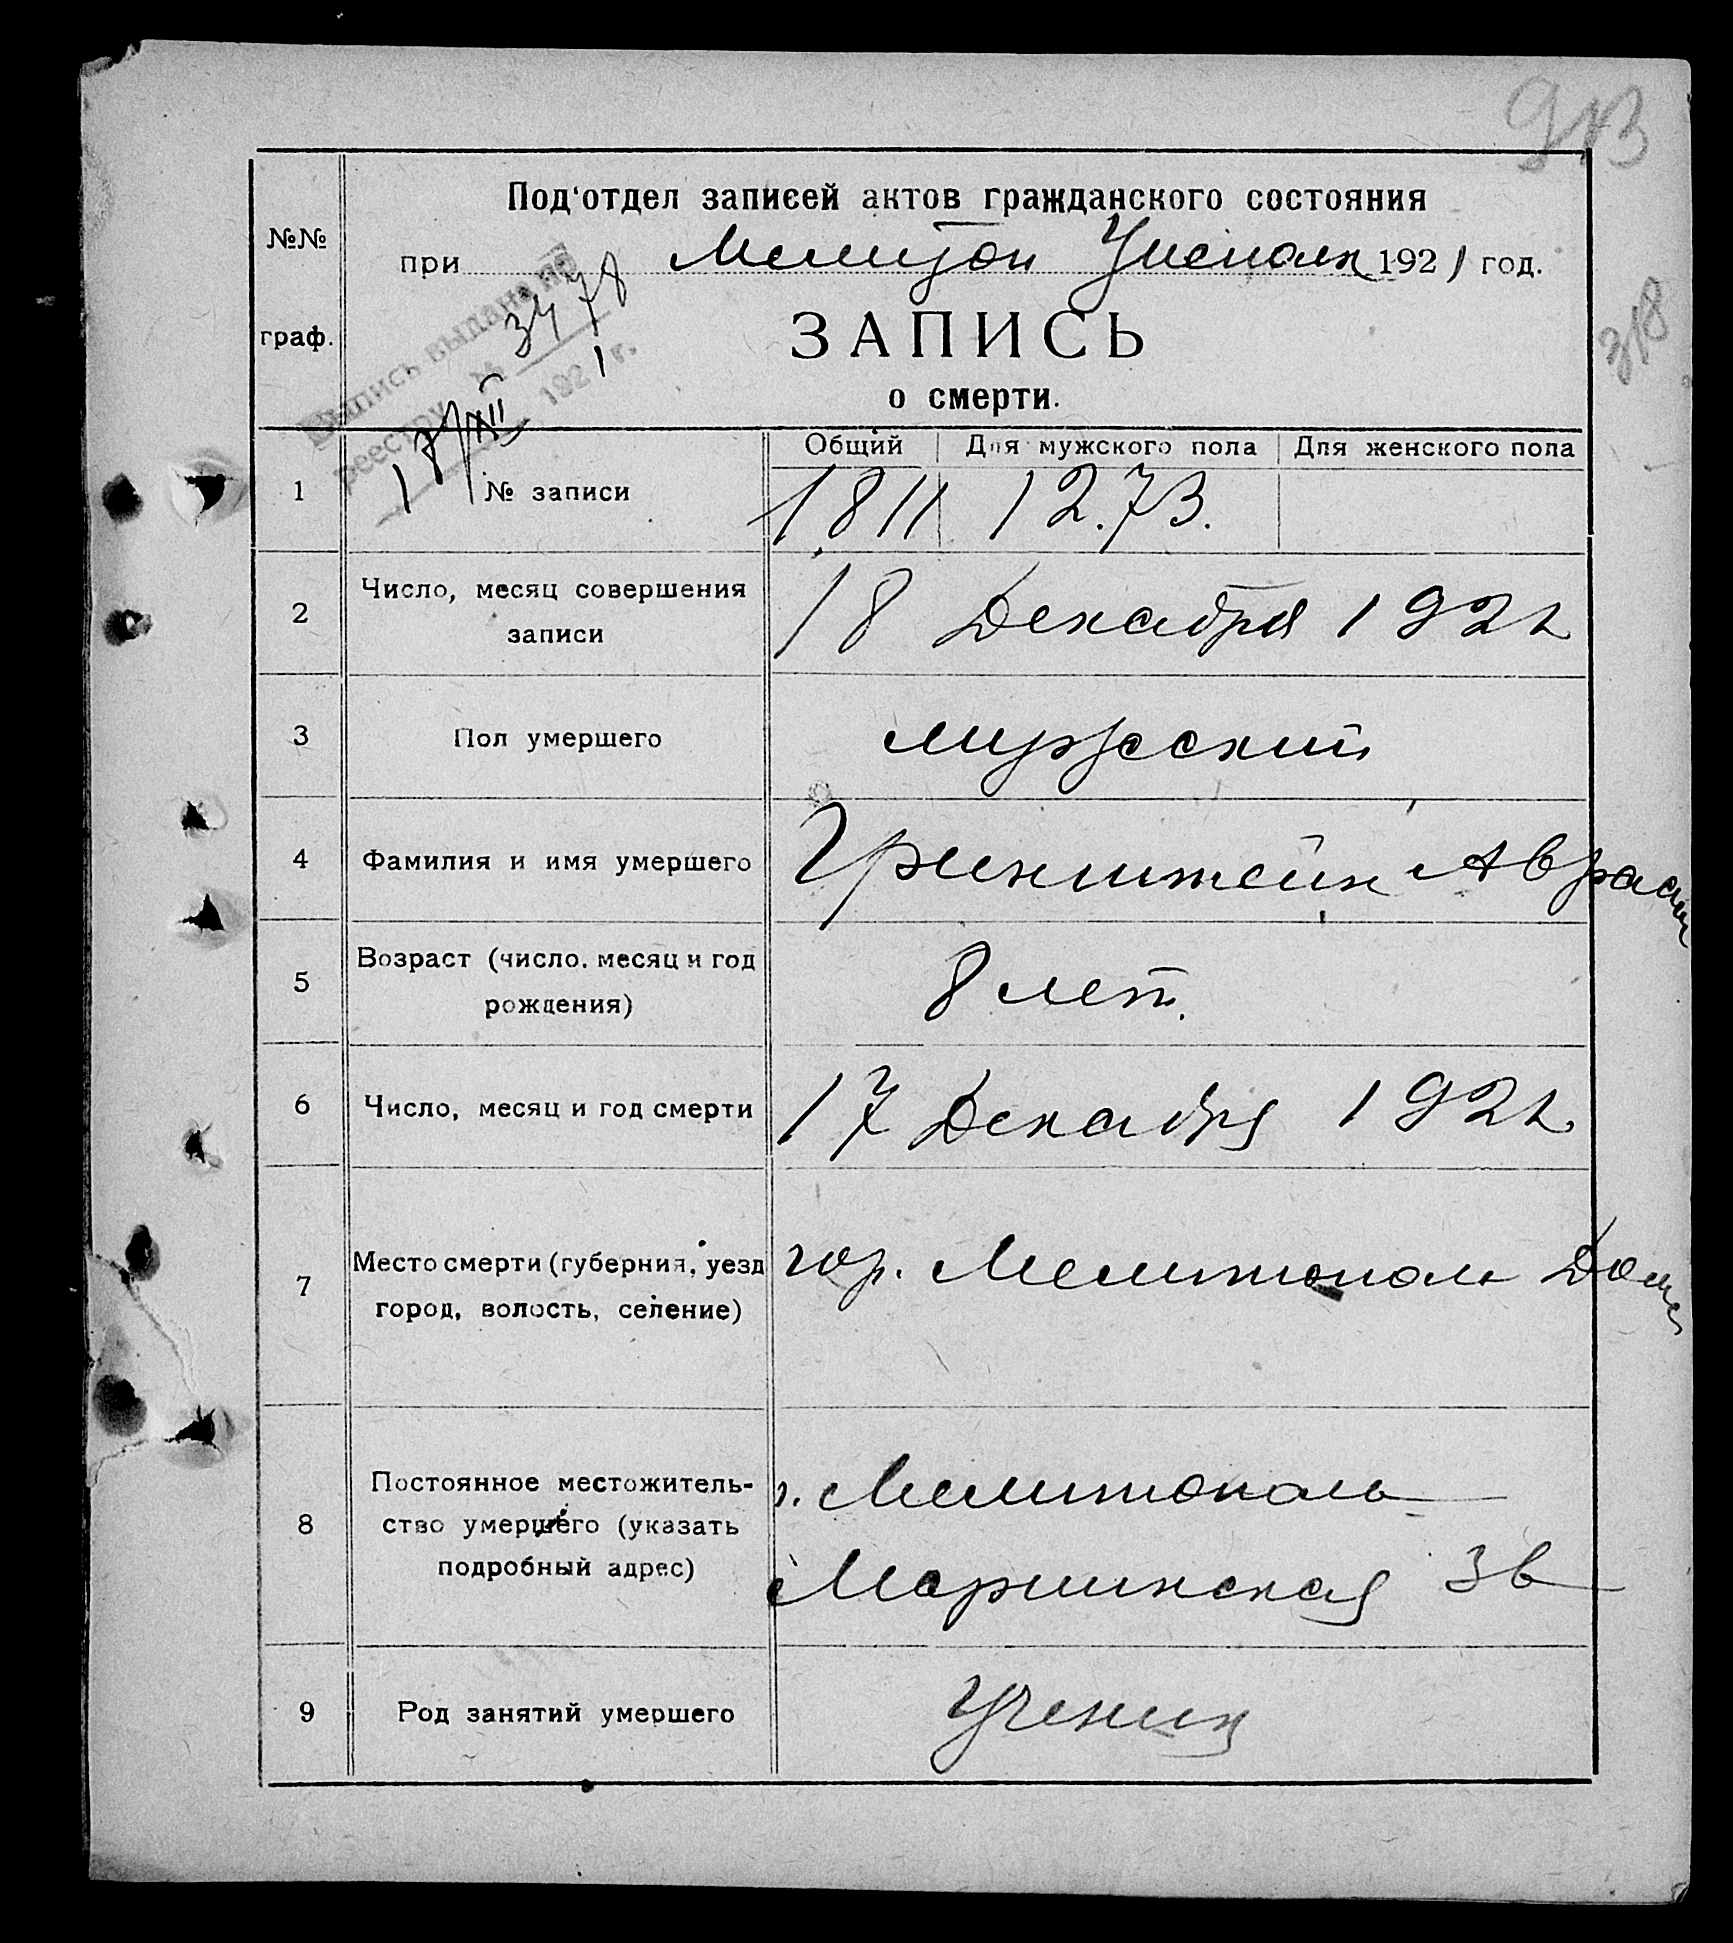 913
Под'отдел записей актов гражданского состояния
№№
при Мелитоп Уисполк 1921 год.
318
Запись выдана по
реестру № 3478
18/XII 1921 г.
граф.
ЗАПИСЬ
о смерти.
Общий Для мужского пола Для женского пола
1 № записи 1811 12.73.
2 Число, месяц совершения
записи
18 Декабря 1921
3 Пол умершего мужеский
4 Фамилия и имя умершего Гринштейн Авраам
5 Возраст (число, месяц и год
рождения)
8 лет.
6 Число, месяц и год смерти 17 Декабря 1921
7 Место смерти (губерния, уезд
город, волость, селение)
гор. Мелитополь Дома
8 Постоянное местожитель-
ство умершего (указать
подробный адрес)
г. Мелитополь
Мариинская 36
9 Род занятий умершего Ученик